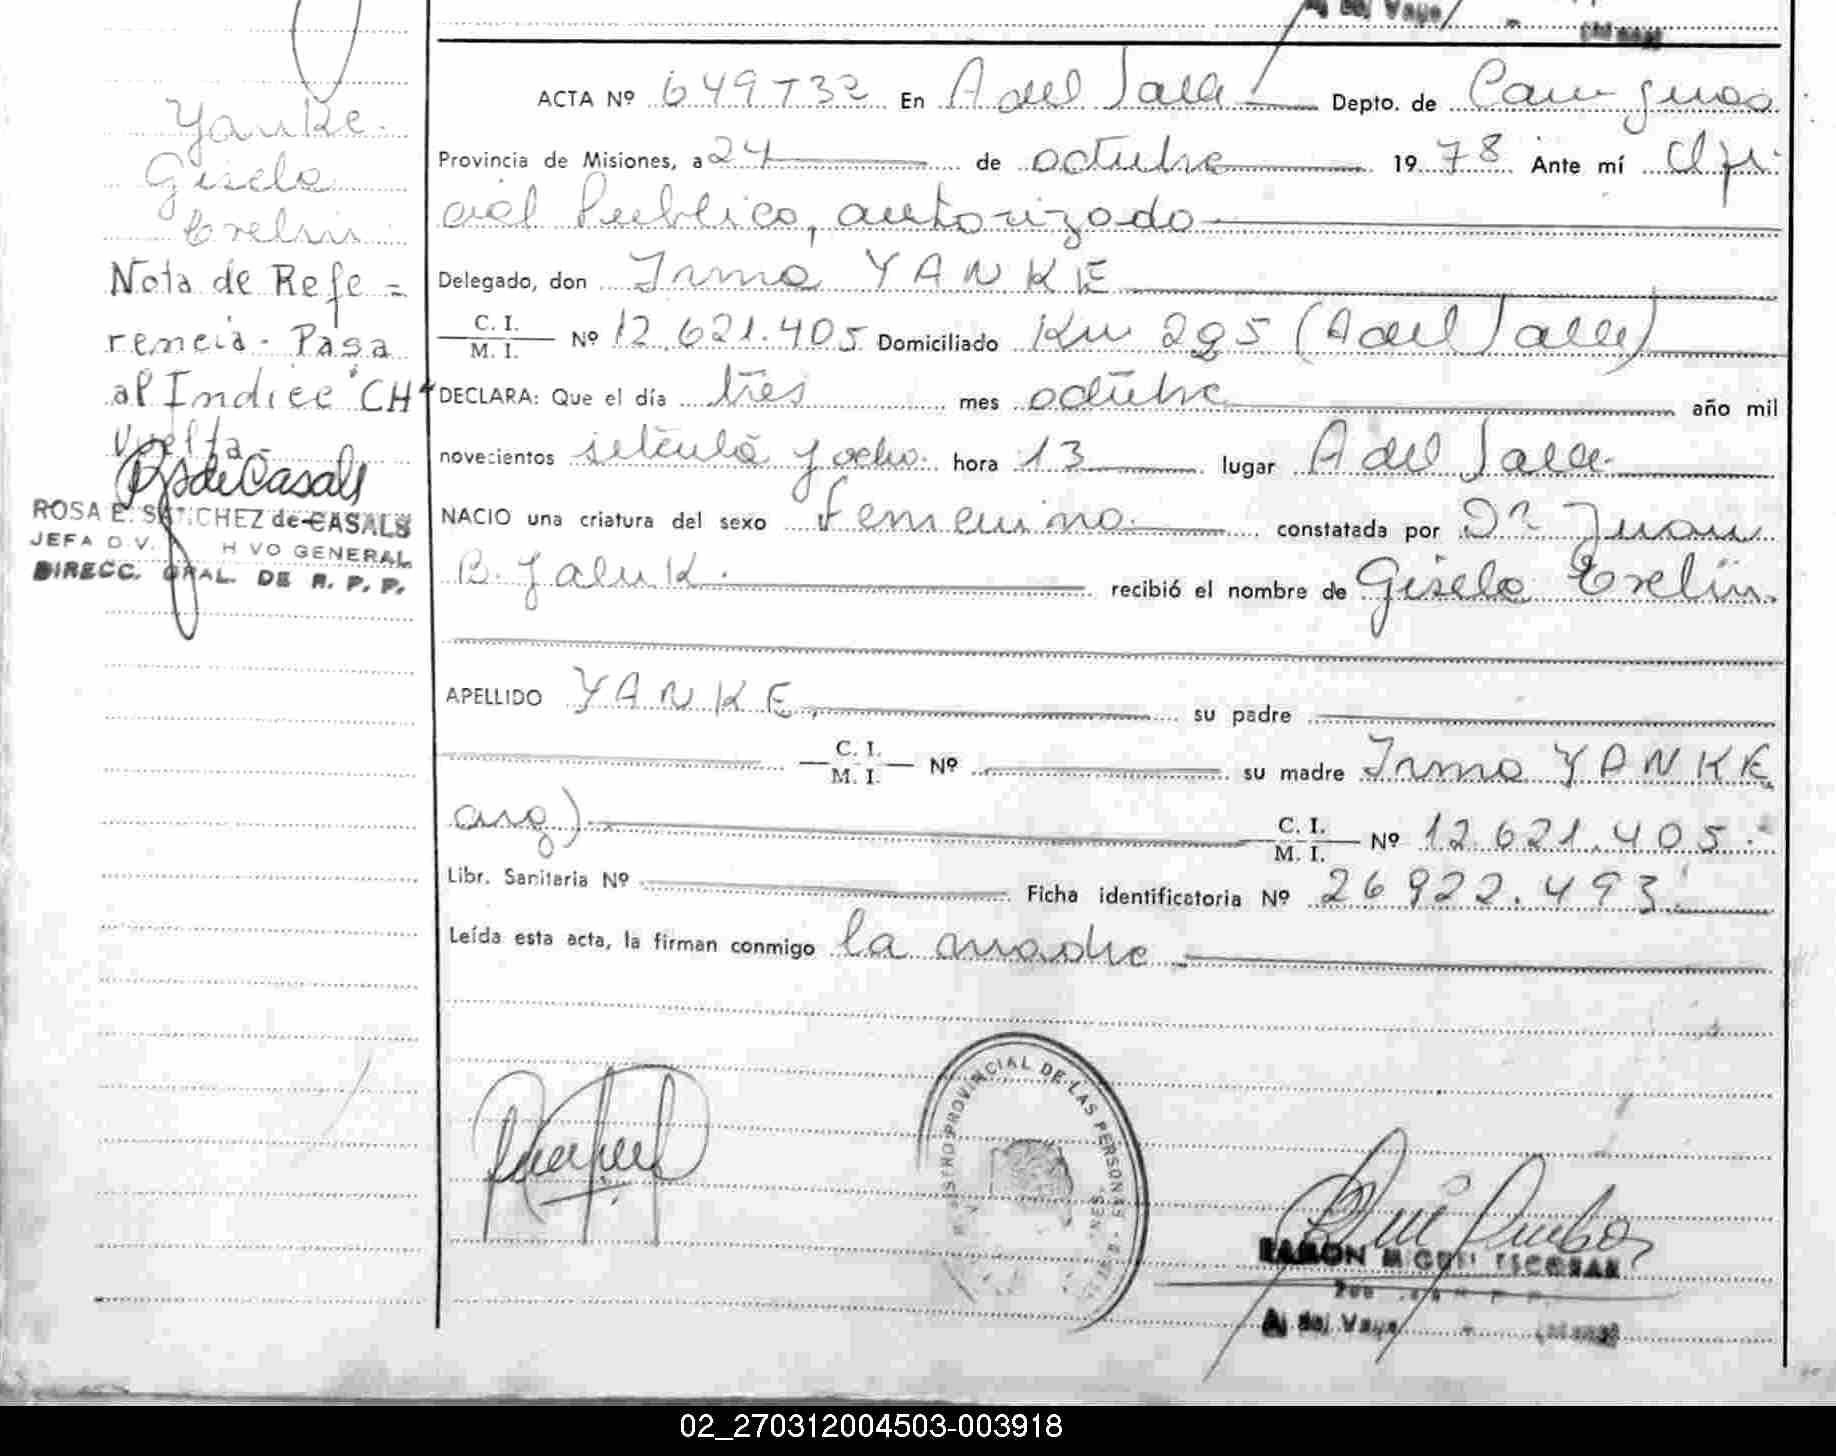 Aº del Vaye
(Mnes)
Yanke
Gisela
Evelin
Nota de Refe =
rencia. Pasa
al Indice "CH"
vuelta
RsdeCasals
ROSA E. SANCHEZ de CASALS
JEFA DIV. HIVO GENERAL
DIRECC. GRAL. DE R. P. P.
ACTA Nº 649 T 32 En A del Valle Depto. de Cainguas
Provincia de Misiones, a 24 de octubre 19 78 Ante mí Ofi-
cial Publico, autorizado
Delegado, don Irma YANKE
C. I.
M. I. Nº 12.621.405 Domiciliado Km 295 (A del Valle)
DECLARA: Que el día tres mes octubre año mil
novecientos setenta y ocho. hora 13 lugar A del Valle.
NACIO una criatura del sexo femenino. constatada por Dr. Juan
B. recibió el nombre de Gisela Evelin.
APELLIDO YANKE, su padre
C. I.
M. I. Nº su madre Irma YANKE
arg)
C. I.
M. I. Nº 12.621.405.
Libr. Sanitaria Nº Ficha identificatoria Nº 26922.493.
Leída esta acta, la firman conmigo la madre
REGISTRO PROVINCIAL DE LAS PERSONAS
RAMON MIGUEL ESCOBAR
(Mnes)
02_270312004503-003918